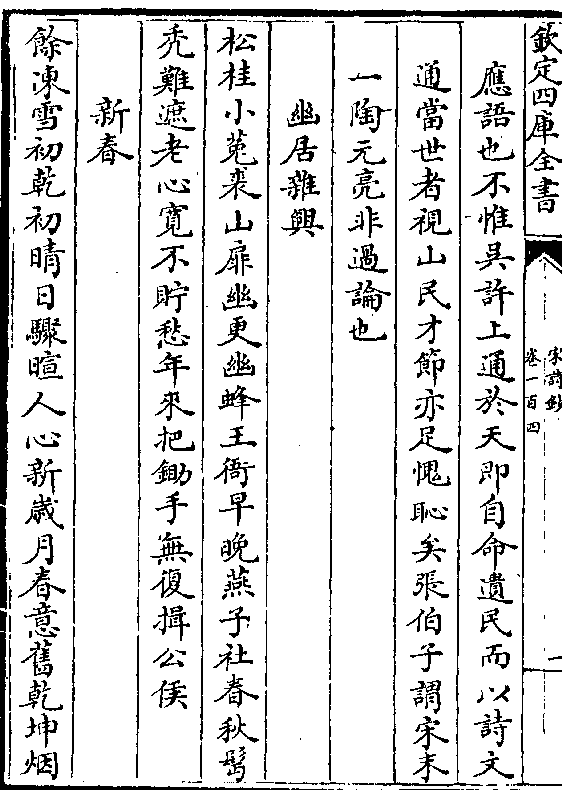 欽定四庫全書
宋詩鈔
卷一百四
應語也不惟吳許上通於天即自命遺民而以詩文
通當世者視山民才節亦足愧恥矣張伯子謂宋末
一陶元亮非過論也
幽居雜興
松桂小菟裘山扉幽更幽蜂王衙早晚燕子社春秋髩
禿難遮老心寬不貯愁年來把鋤手無復揖公侯
新春
餘凍雪初乾初晴日驟暄人心新歲月春意舊乾坤烟